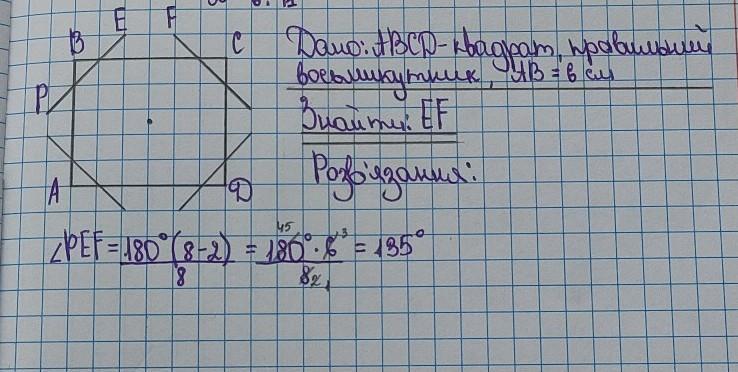 E F
B C
P
A D
Дано: ABCD-квадрат, правильний
восьмикутник, AB = 6 см
Знайти: EF
Розв'язання:
∠PEF = 180°(8-2) / 8 = 180°·6 / 8 = 135°
45 3
2 1